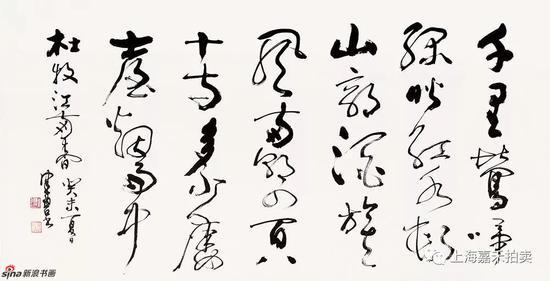 千里鶯啼
綠映紅水村
山郭酒旗
風南朝四百八
十寺多少樓
臺烟雨中
杜牧江南春 癸未夏日
sina 新浪书画
上海嘉禾拍卖